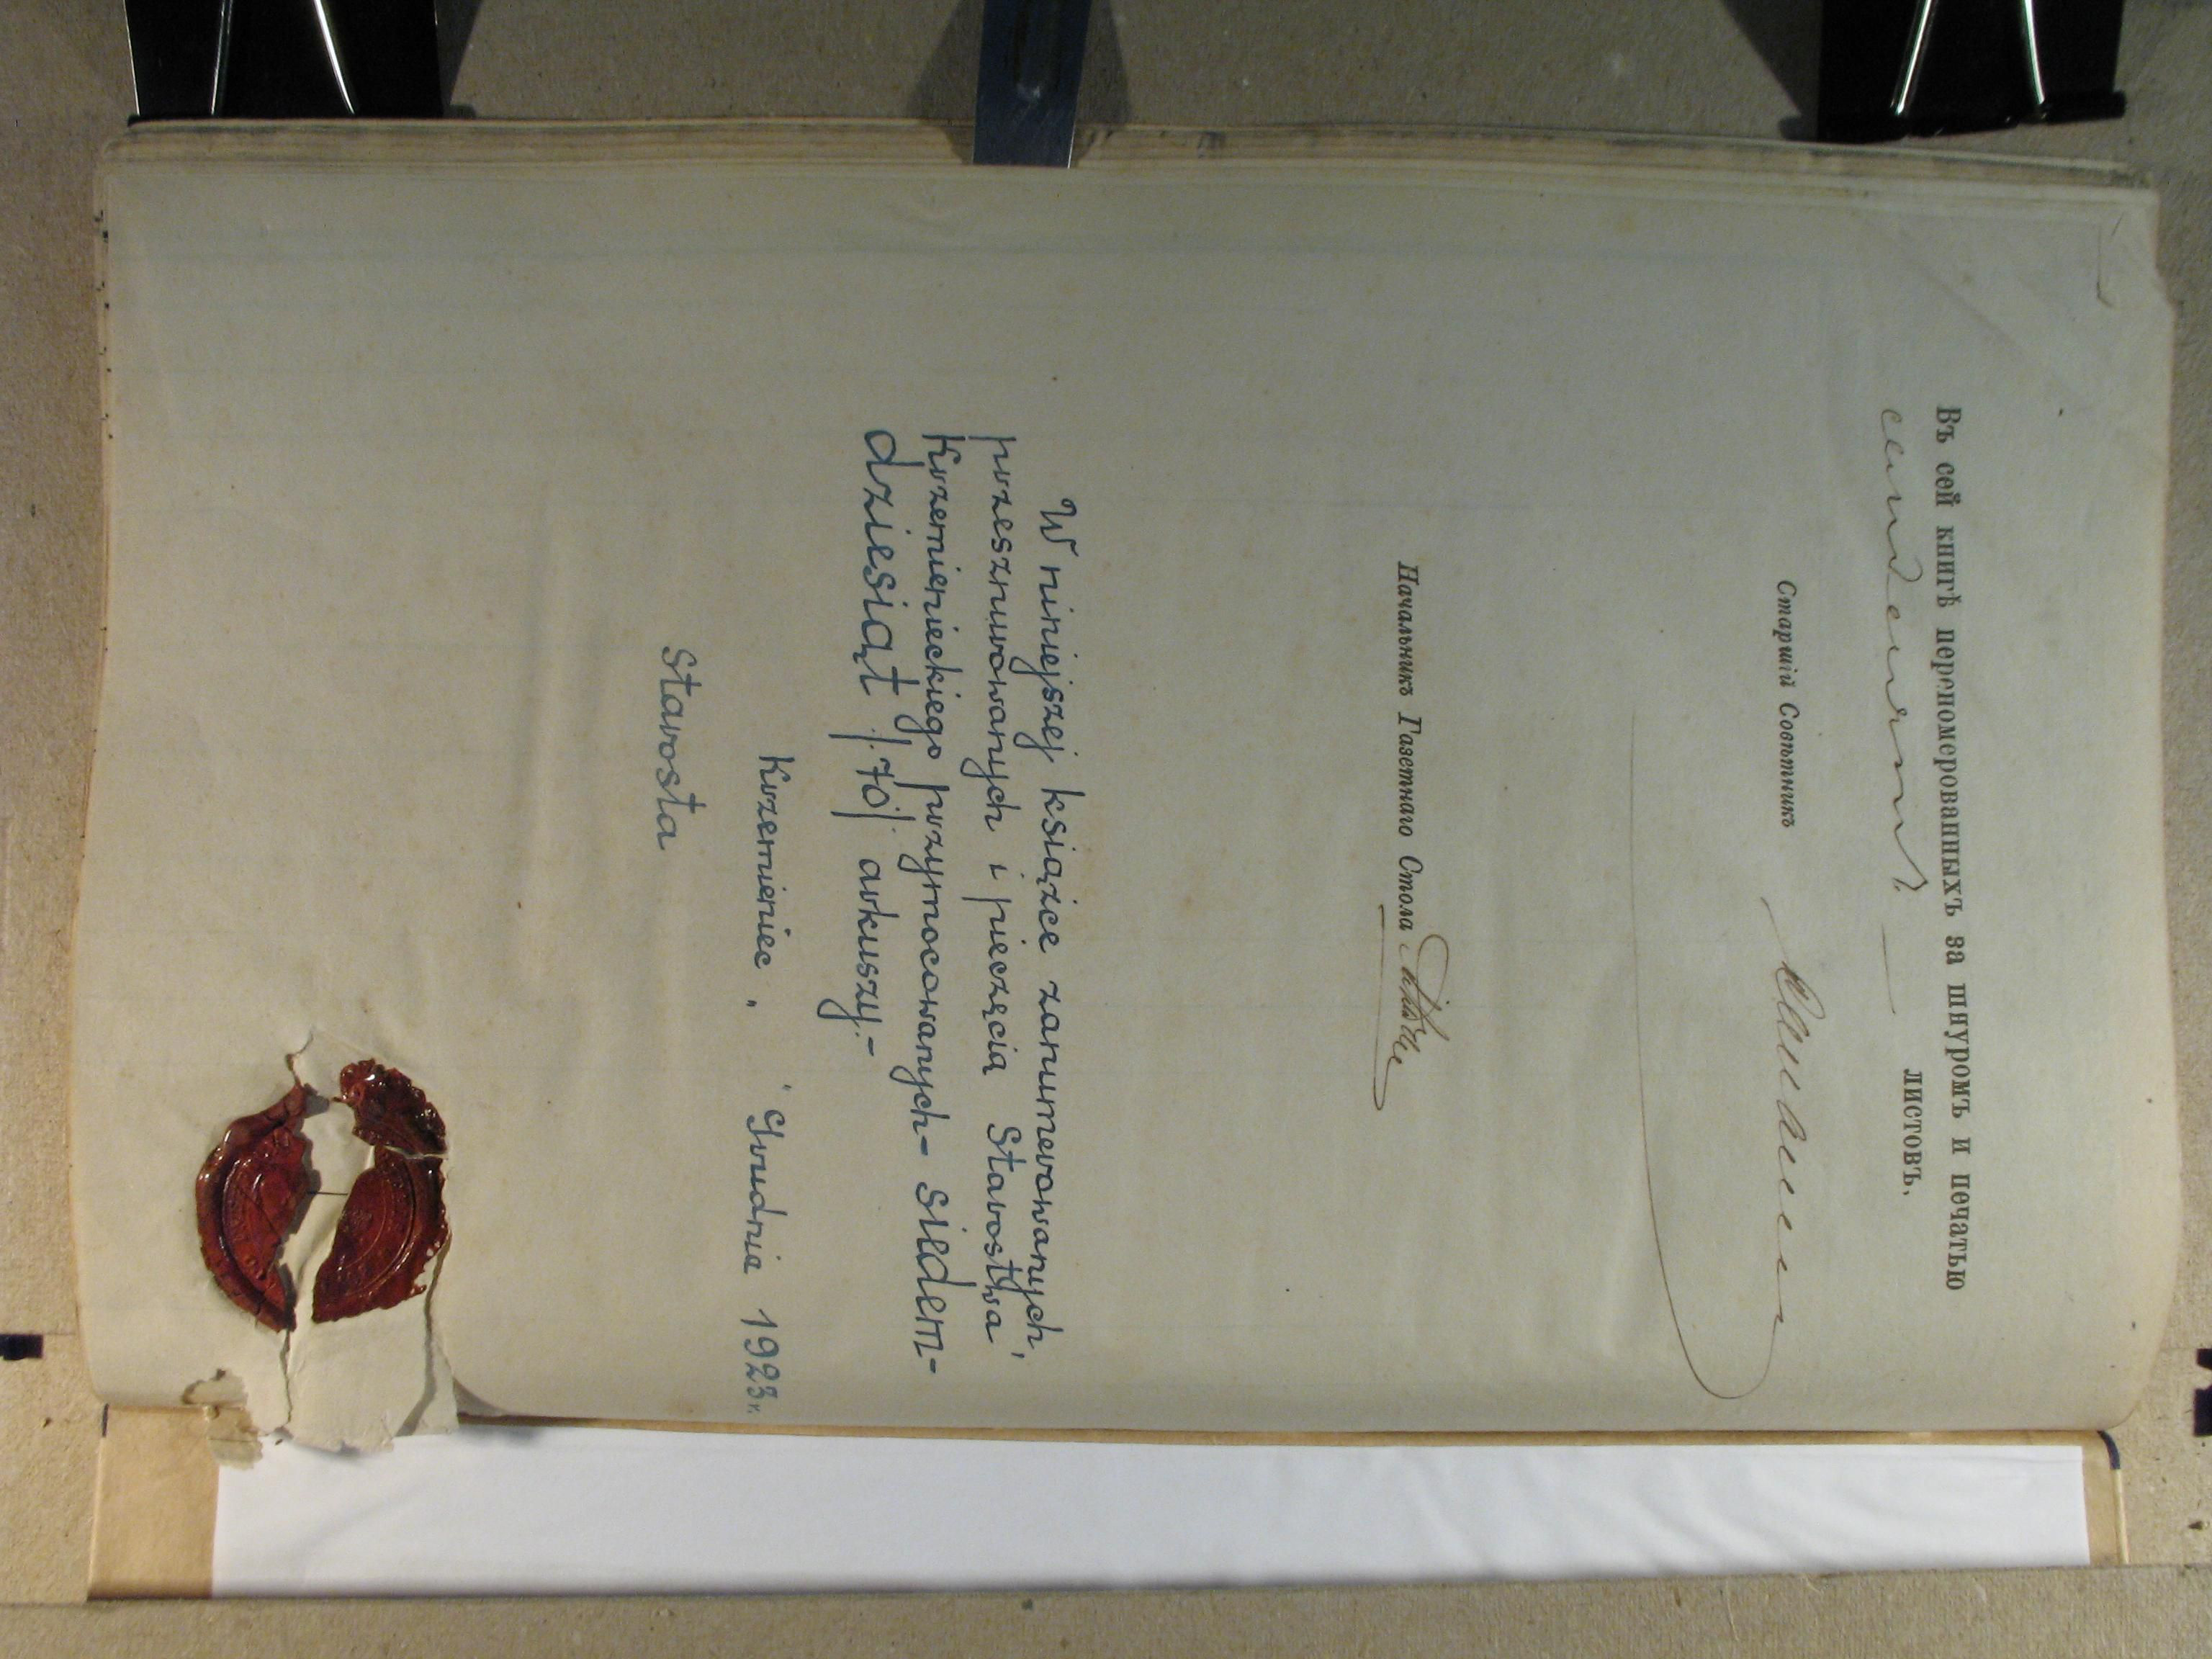 Въ сей книгѣ перепомерованныхъ за шнуромъ и печатью
семдесятъ листовъ.
Старшій Совѣтникъ
Начальникъ Газетнаго Стола
W niniejszej książce zanumerowanych,
przesznurowanych i pieczęcią Starostwa
Krzemienieckiego przymocowanych - siedem-
dziesiąt /70/ arkuszy.-
Krzemieniec, " " Grudnia 1923 r.
Starosta